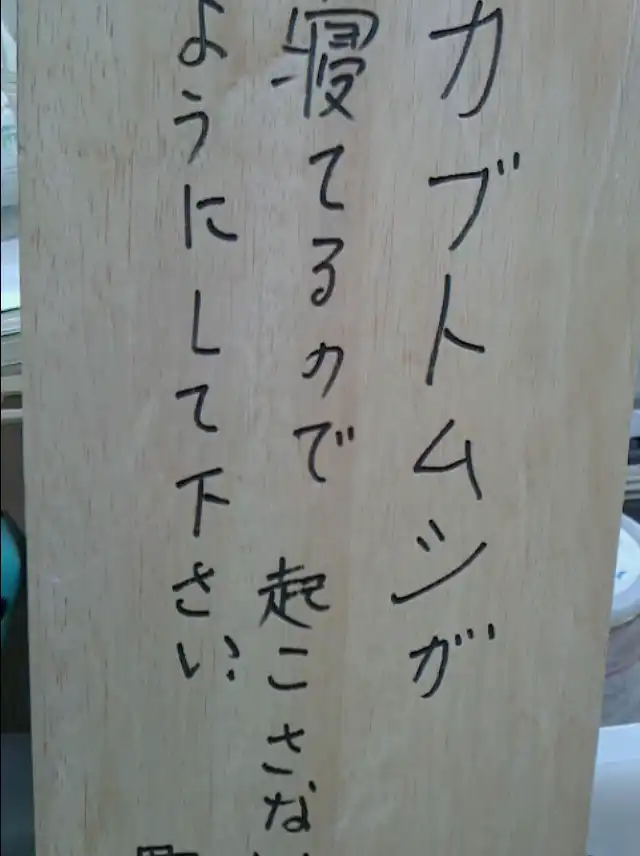 カブトムシが
寝てるので 起こさな
ようにして下さい